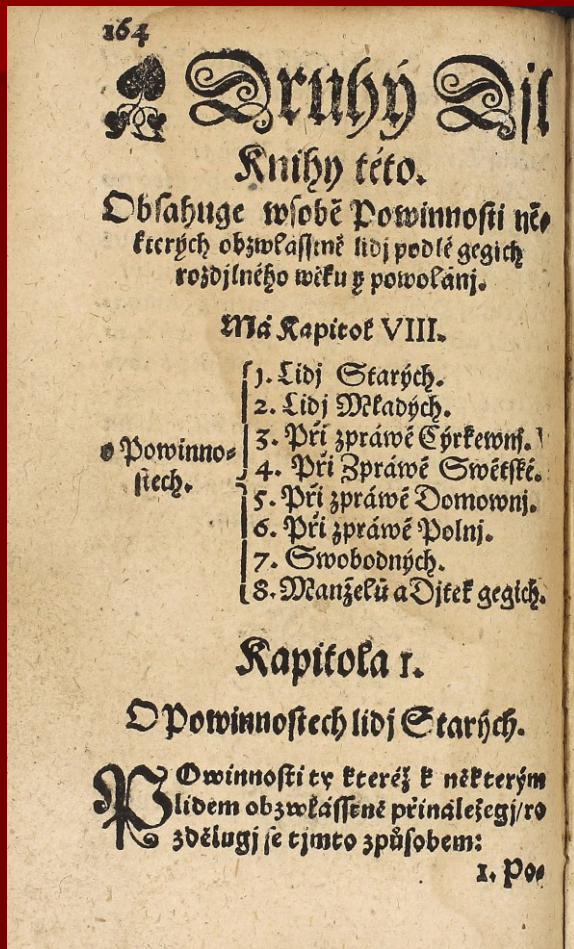 164
Druhý Djl
Knihy této.
Obsahuge wsobě Powinnosti ně-
kterých obzwlásstně lidj podlé gegich
rozdjlného wěku y powolánj.
Má Kapitol VIII.
o Powinno-
stech.
1. Lidj Starých.
2. Lidj Mladých.
3. Při zpráwě Cýrkewnj.
4. Při Zpráwě Swětské.
5. Při zpráwě Domownj.
6. Při zpráwě Polnj.
7. Swobodných.
8. Manželů a Djtek gegich.
Kapitola 1.
O Powinnostech lidj Starých.
POwinnosti ty kteréž k některým
lidem obzwlásstně přináležegj/ ro
zdělugj se tjmto způsobem:
1. Po-